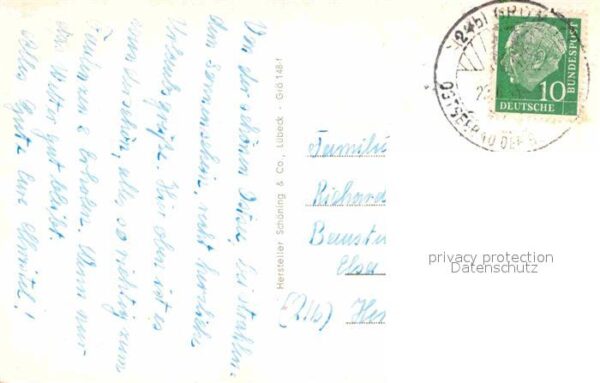 Von der schönen Ostsee, bei strahlen-
dem Sonnenschein, recht herzliche
Urlaubsgrüße. Hier oben ist es
wunderschön, alles so richtig zum
Faulenzen & Erholen. Wenn nur
das Wetter gut bleibt.
Alles Gute Eure
Hersteller Schöning & Co., Lübeck · Grö 148-f
Familie
Richard
Elsa
(21b) He
(24b) GRÖM
OSTSEE
10
DEUTSCHE
BUNDESPOST
privacy protection
Datenschutz